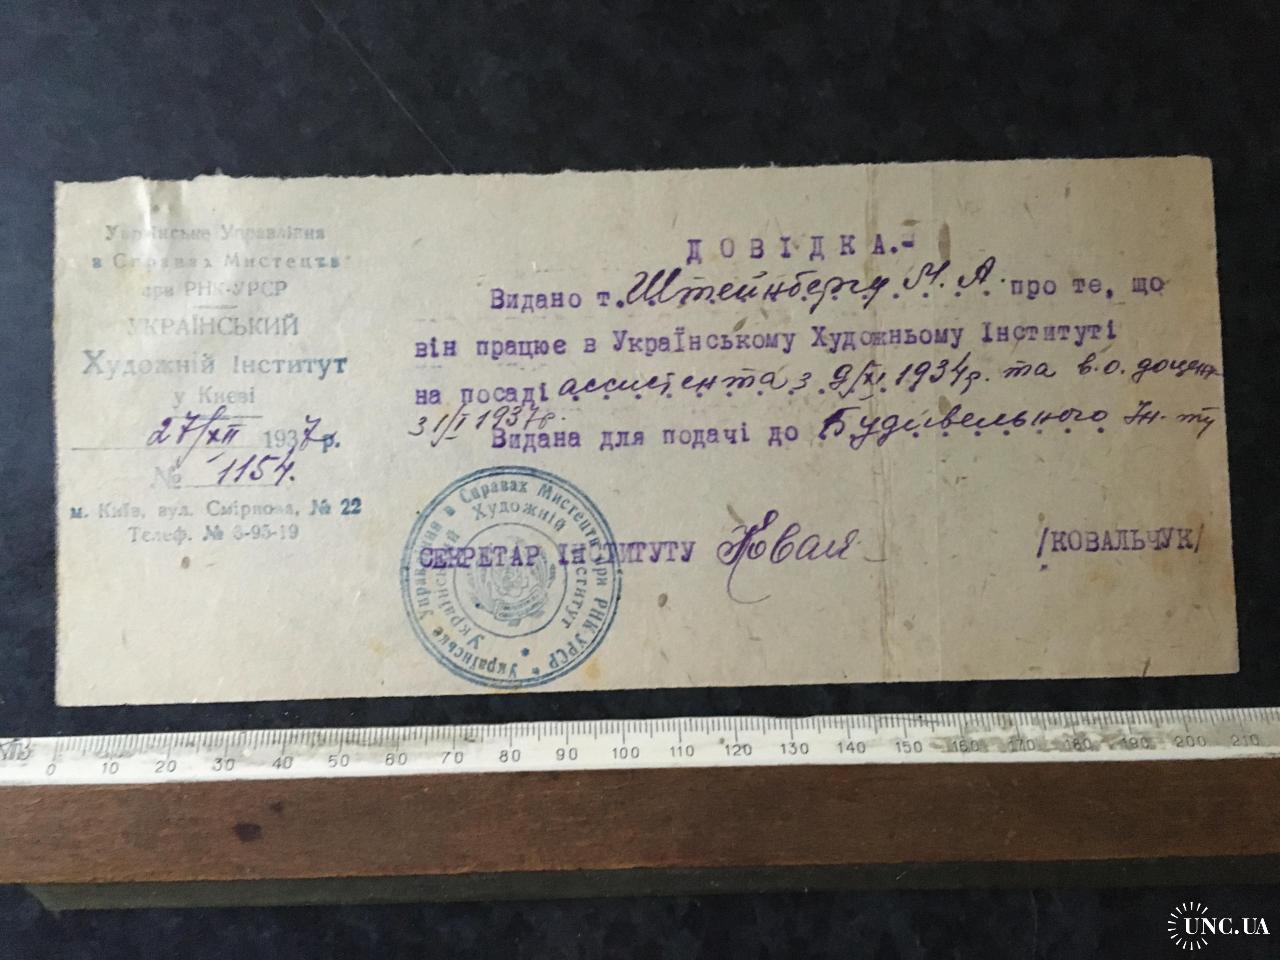 Українське Управління
в Справах Мистецтв
при РНК-УРСР
УКРАЇНСЬКИЙ
Художній Інститут
у Києві
27/XII 1937р.
№ 1154.
м. Київ, вул. Смірнова, № 22
Телеф. № 3-95-19
ДОВІДКА.-
Видано т. Штейнбергу М. А. про те, що
він працює в Українському Художньому Інституті
на посаді ассистента з 9/XI 1934р. та в.о. доцент
з 1/I 1937р.
Видана для подачі до Будівельного Ін-ту
СЕКРЕТАР ІНСТИТУТУ Ковал /КОВАЛЬЧУК/
Українське Управління в Справах Мистецтв при РНК УРСР *
Український Художній Інститут
0 10 20 30 40 50 60 70 80 90 100 110 120 130 140 150 160 170 180 190 200 210
UNC.UA